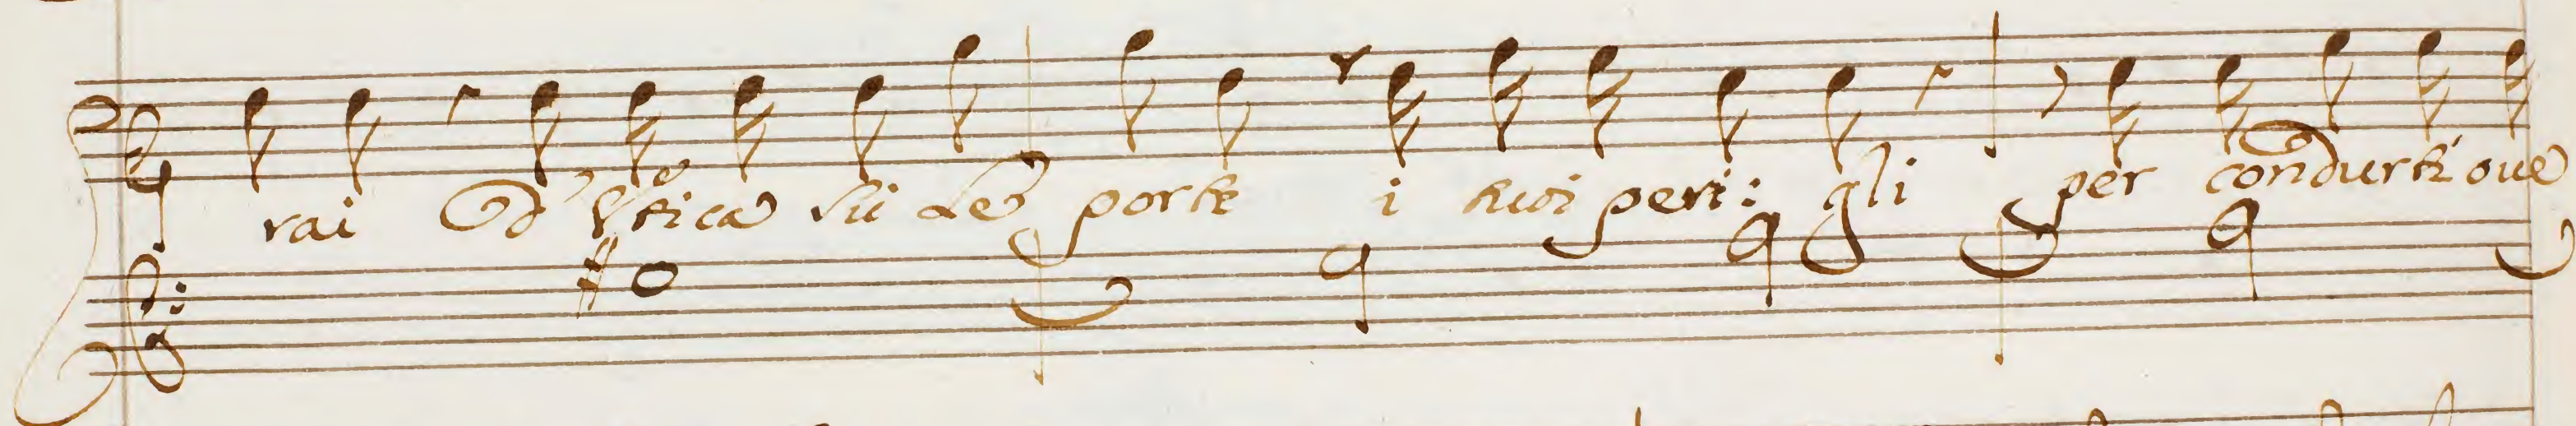 rai d'Vtica sù le porte i tuoi peri: gli per condurti oue